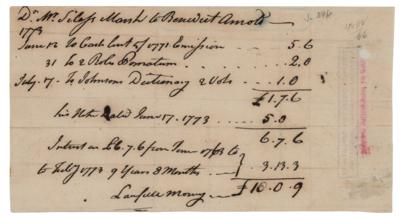 Dr. Mr. Silass Marsh to Benedict Arnold
1773
June 12 To Cash Lent of 1771 Emission 5.6
31 to 2 2.0
July 17 To Johnsons Dictionary 2 Vols 1.0
£1.7.6
his Note Dated Jany 17. 1773 5.0
6.7.6
Interest on £6.7.6 from June 1763 to
to Feby 1773 9 Years 8 Months 3.13.3
Lawfull Money £10.0.9